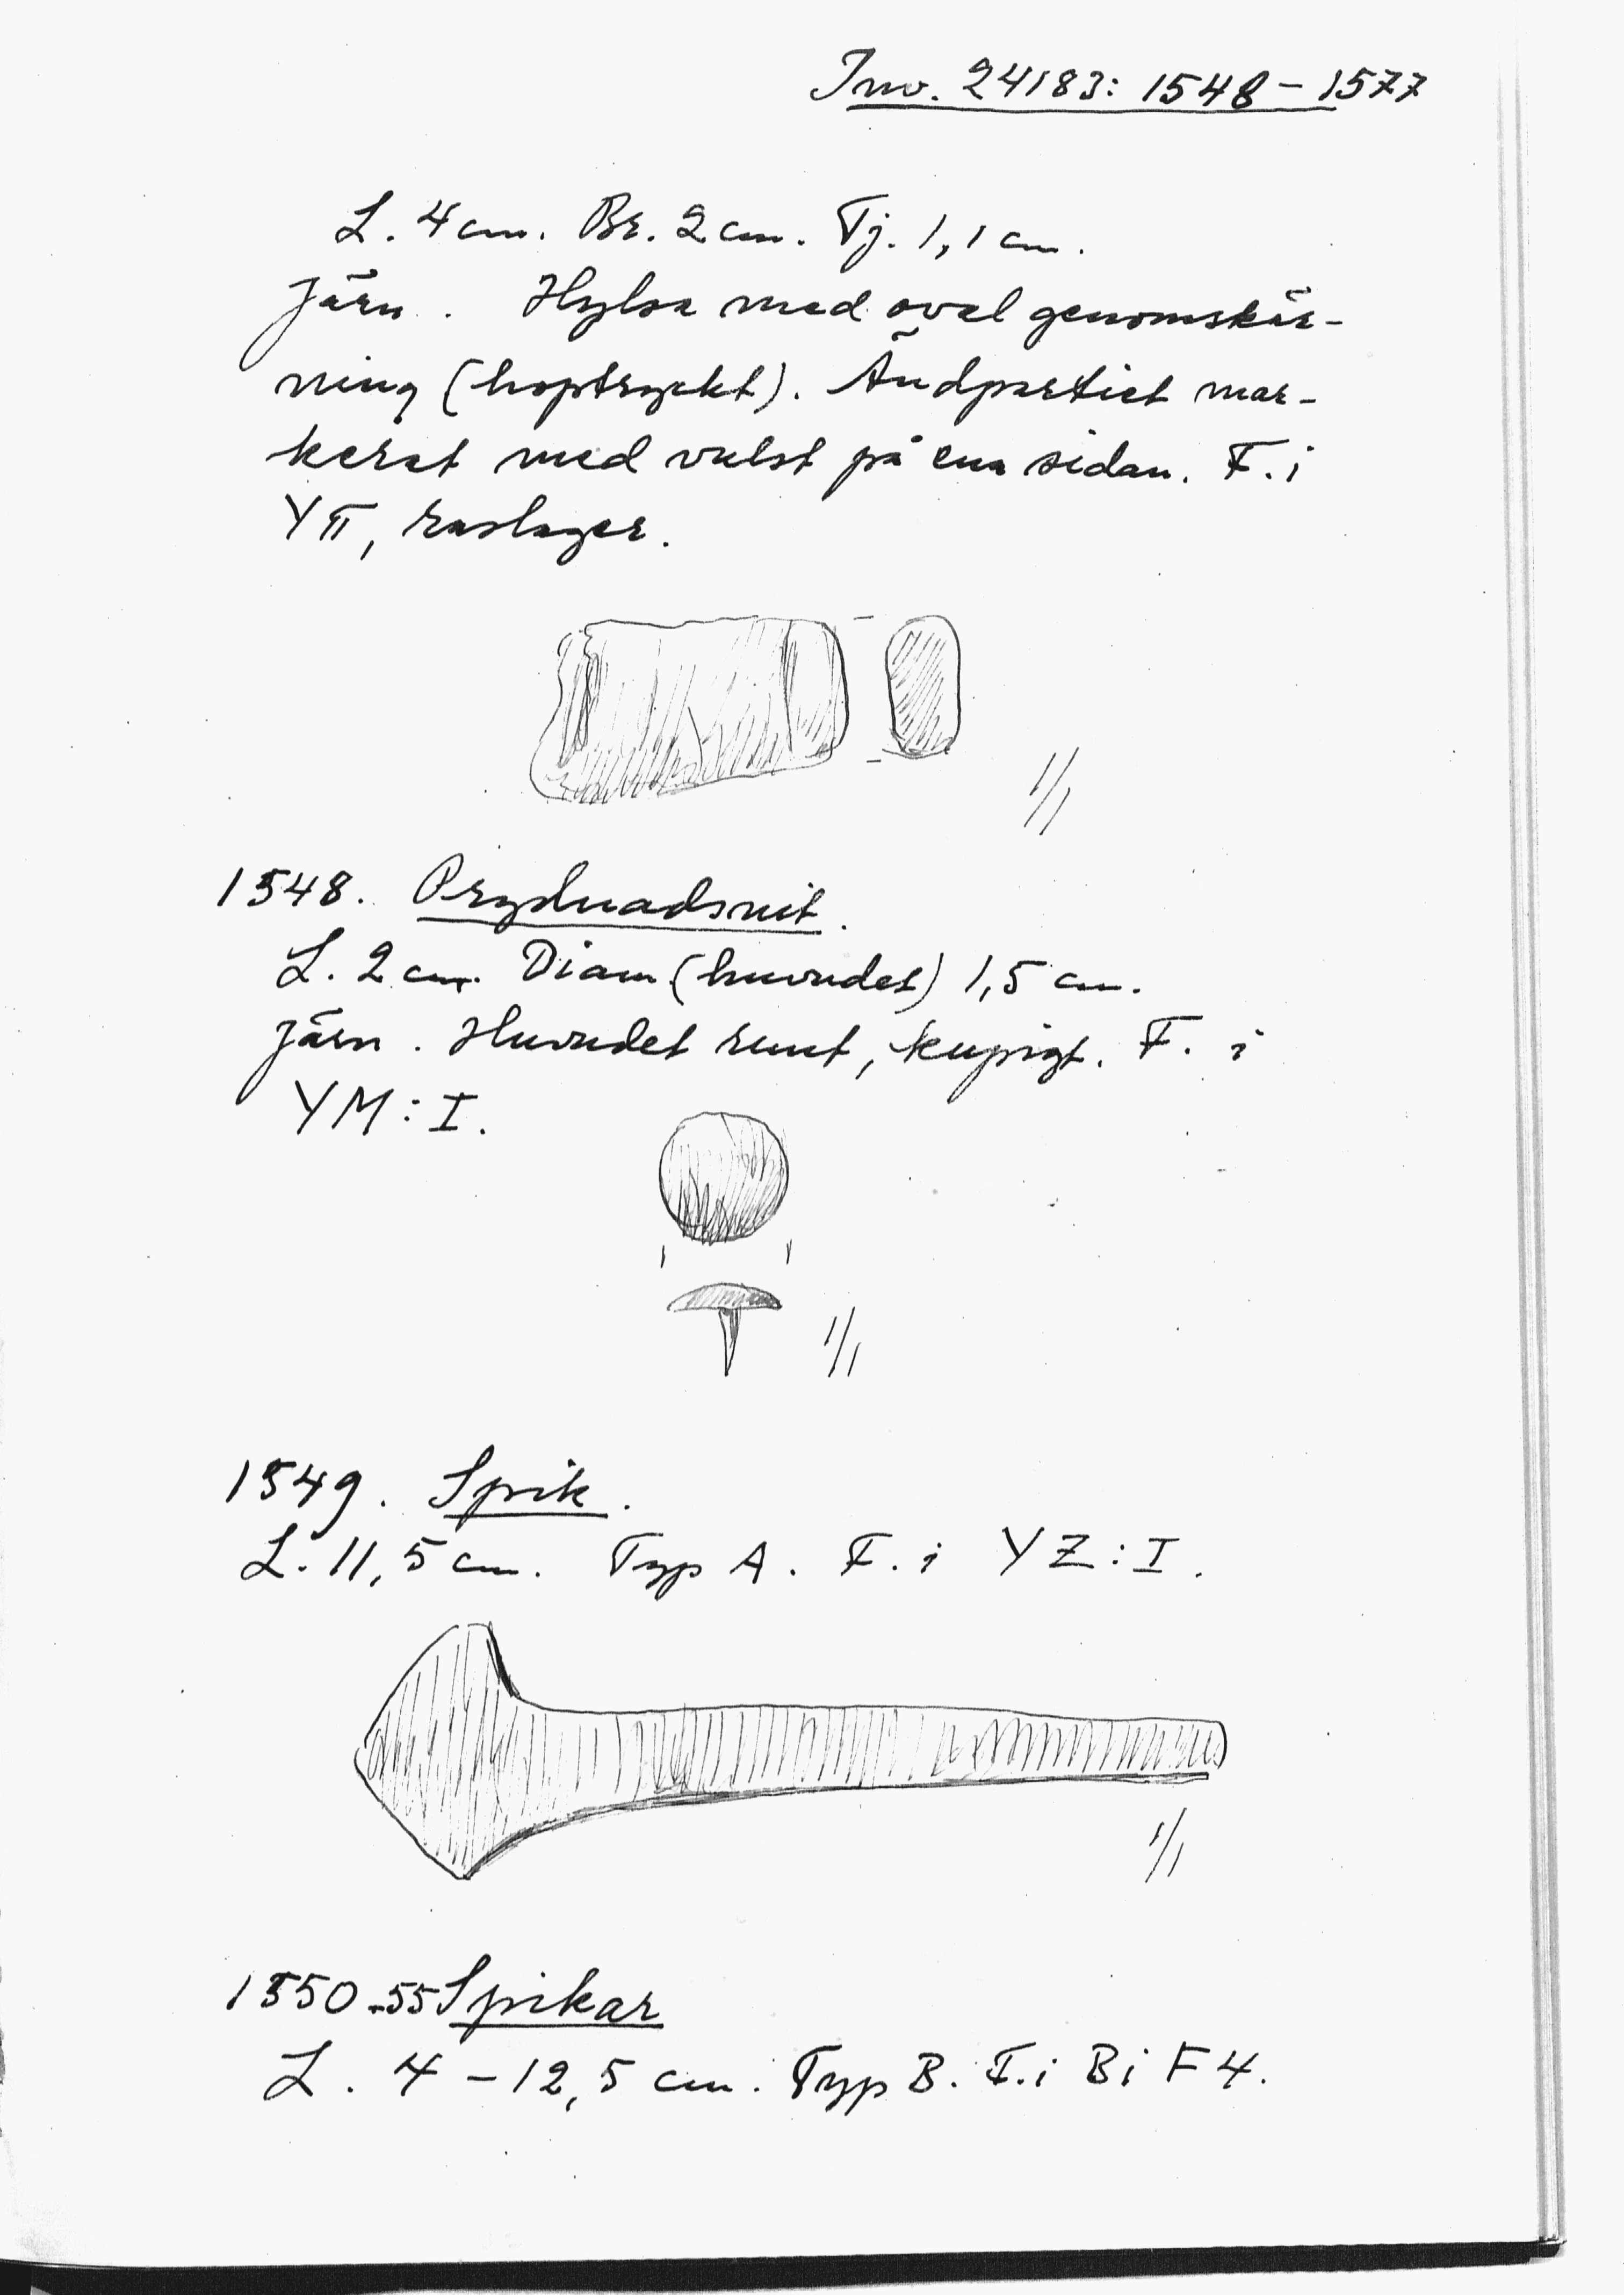 Inv. 24183: 1548-1577
L. 4 cm. Br. 2 cm. Tj. 1,1 cm.
Järn. Hylsa med oval genomskär-
ning (hoptryckt). Ändpartiet mar-
kerat med vulst på ena sidan. F. i
YTI, raslager.
1/1
1548. Prydnadsnit.
L. 2 cm. Diam. (huvudet) 1,5 cm.
Järn. Huvudet runt, kupigt. F. i
YM:I.
1/1
1549. Spik.
L. 11,5 cm. Typ A. F. i YZ:I.
1/1
1550-55 Spikar
L. 4-12,5 cm. Typ B. F. i Bi F4.